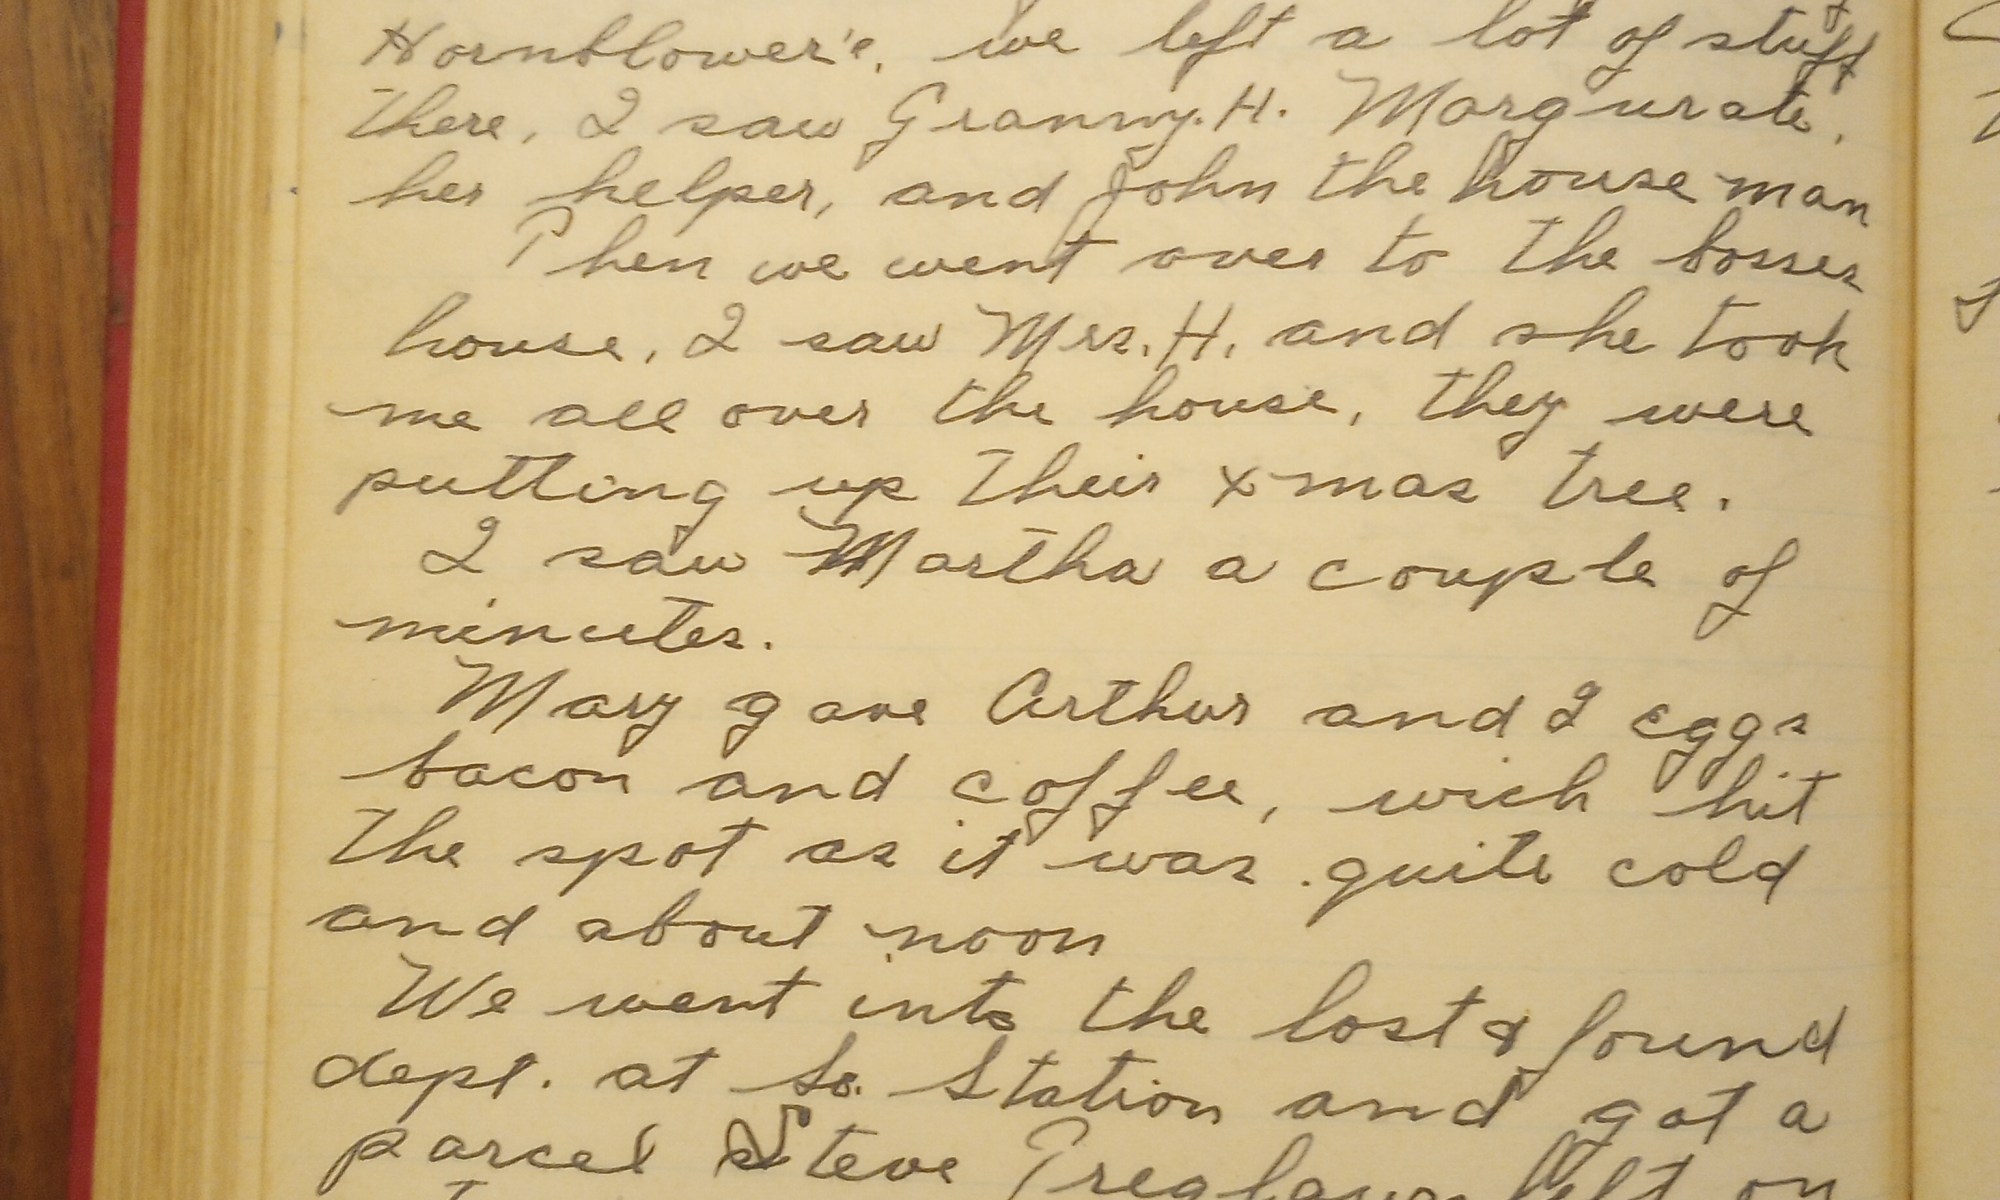 Hornblower's, we left a lot of stuff
there, I saw Granny. H. Margurate,
her helper, and John the house man
Then we went over to the bosses
house, I saw Mrs. H, and she took
me all over the house, they were
putting up their xmas tree.
I saw Martha a couple of
minutes.
Mary gave Arthur and I eggs
bacon and coffee, wich hit
the spot as it was quite cold
and about noon
We went into the lost & found
dept. at So. Station and got a
parcel Steve left on